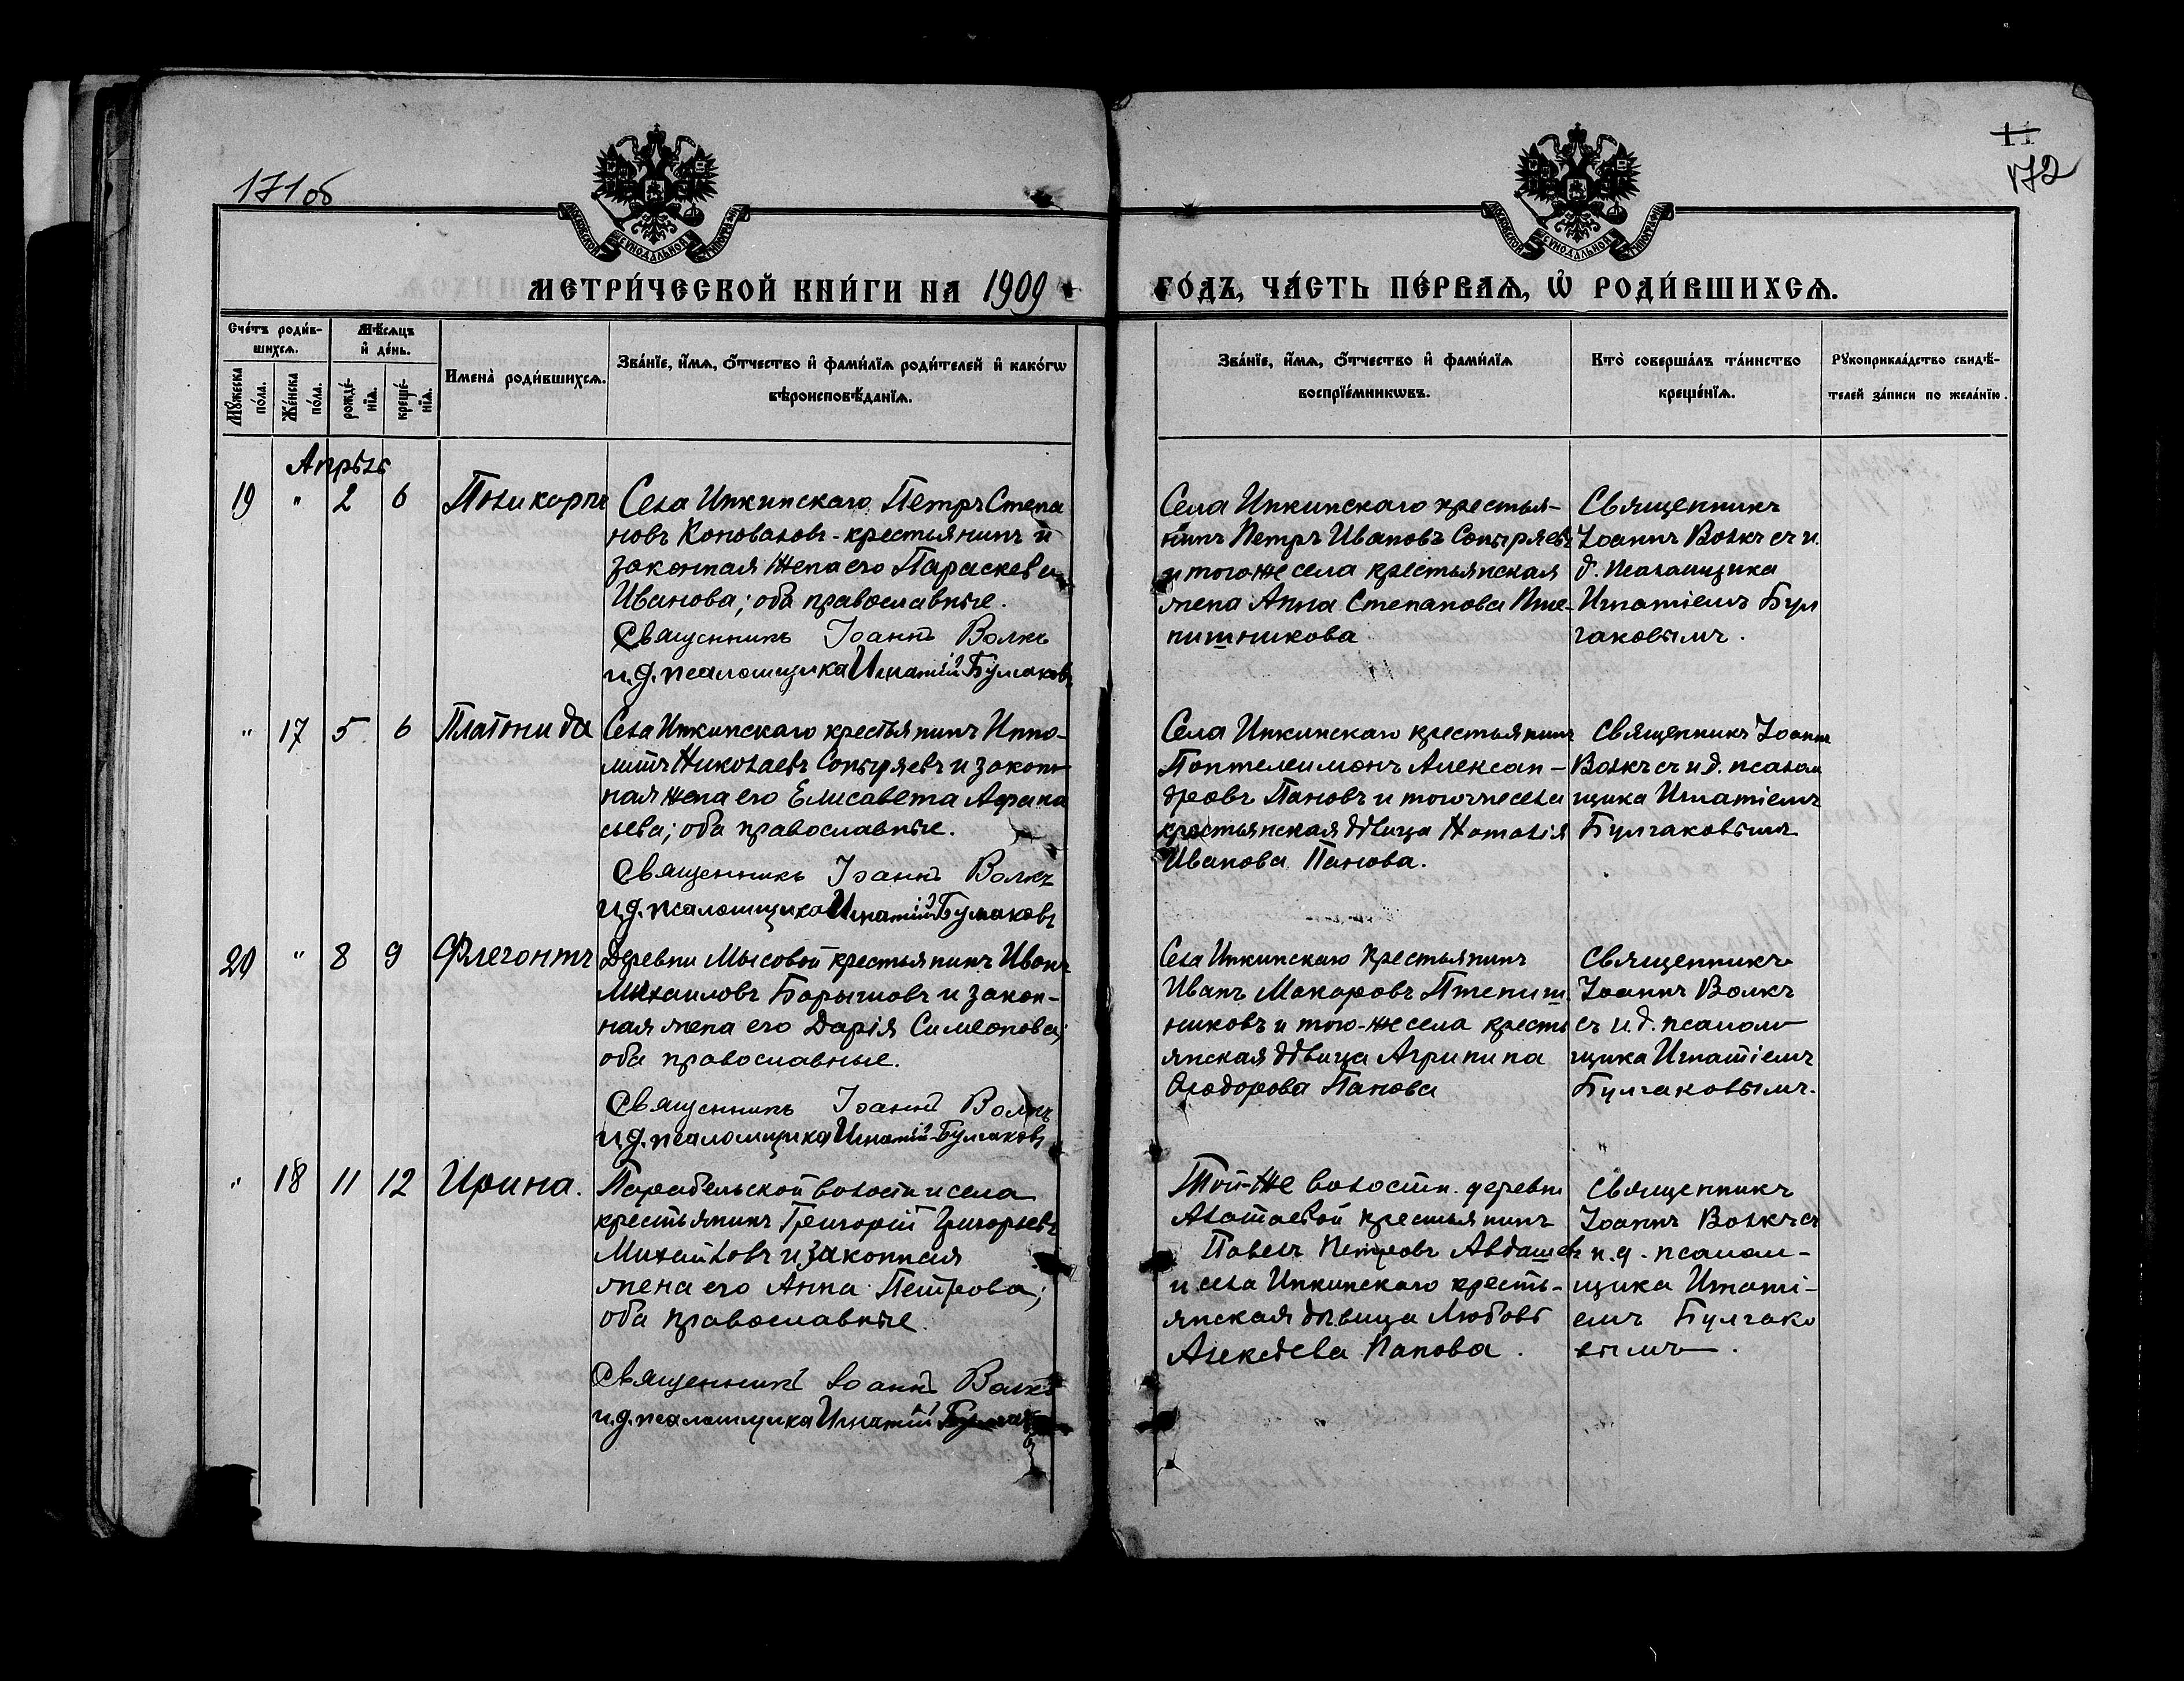 171об
172
МОСКОВСКОЙ СѴНОДАЛЬНОЙ ТИПОГРАФІИ
МОСКОВСКОЙ СѴНОДАЛЬНОЙ ТИПОГРАФІИ
МЕТРИ́ЧЕСКОЙ КНИ́ГИ НА 1909
ГО́ДЪ, ЧА́СТЬ ПЕ́РВАѦ, Ѡ҆ РОДИ́ВШИХСѦ.
Сче́тъ роди́в-
шихсѧ.
Мꙋ́жеска по́ла.
Же́нска по́ла.
Мѣ́сѧцъ
и҆ де́нь.
рожде́-нїѧ.
креще́-нїѧ.
Имена̀ роди́вшихсѧ.
Зва́нїе, и҆́мѧ, ѻ҆́тчество и҆ фами́лїѧ роди́телей и҆ како́гѡ
вѣроисповѣ́данїѧ.
Зва́нїе, и҆́мѧ, ѻ҆́тчество и҆ фами́лїѧ
воспрїе́мникѡвъ.
Кто̀ соверша́лъ та́инство
креще́нїѧ.
Рꙋкоприкла́дство свидѣ́-
телей за́писи по жела́нїю.
Апрѣль
19 " 2 6 Поликарпъ
Села Инкинскаго Петръ Степа
новъ Коновалов - крестьянинъ и
законная жена его Параскева
Иванова; оба православные.
Священникъ Іоаннъ Волкъ
и.д. псаломщика Игнатій Булгаковъ
Села Инкинскаго крестья-
нинъ Петръ Ивановъ Сопыряевъ
и того же села крестьянская
жена Анна Степанова Пше-
ничникова
Священникъ
Іоаннъ Волкъ съ и.
д. псаломщика
Игнатіемъ Бул
гаковымъ.
" 17 5 6 Платонида
Села Инкинскаго крестьянинъ Иппо-
литъ Николаевъ Сопыряевъ и закон
ная жена его Елисавета Афана
сьева; оба православные.
Священникъ Іоаннъ Волкъ
и.д. псаломщика Игнатій Булгаковъ
Села Инкинскаго крестьянинъ
Пантелеимонъ Алексан-
дровъ Пановъ и того же села
крестьянская дѣвица Наталія
Иванова Панова.
Священникъ Іоаннъ
Волкъ съ и д. псалом
щика Игнатіемъ
Булгаковымъ
20 " 8 9 Флегонтъ
Деревни Мысовой крестьянинъ Иванъ
Михаиловъ Барышовъ и закон-
ная жена его Дарія Симеонова;
оба православные.
Священникъ Іоаннъ Волкъ
и.д. псаломщика Игнатій Булгаковъ
Села Инкинскаго крестьянинъ
Иванъ Макаровъ Птениш
никовъ и того-же села кресть
янская дѣвица Агрипина
Ѳеодорова Панова
Священникъ
Іоаннъ Волкъ
съ и.д. псалом
щика Игнатіемъ
Булгаковымъ.
" 18 11 12 Ирина.
Парабельской волости и села
крестьянинъ Григорій Григорьевъ
Михайловъ и законная
жена его Анна Петрова;
оба православные.
Священникъ Іоаннъ Волкъ
и.д. псаломщика Игнатій
Той-же волости деревни
Алатаевой крестьянинъ
Павелъ Петровъ Авдашевъ
и села Инкинскаго кресть-
янская дѣвица Любовь
Алексѣева Панова.
Священникъ
Іоаннъ Волкъ съ
и.д. псалом-
щика Игнаті-
емъ Булгако
вымъ.